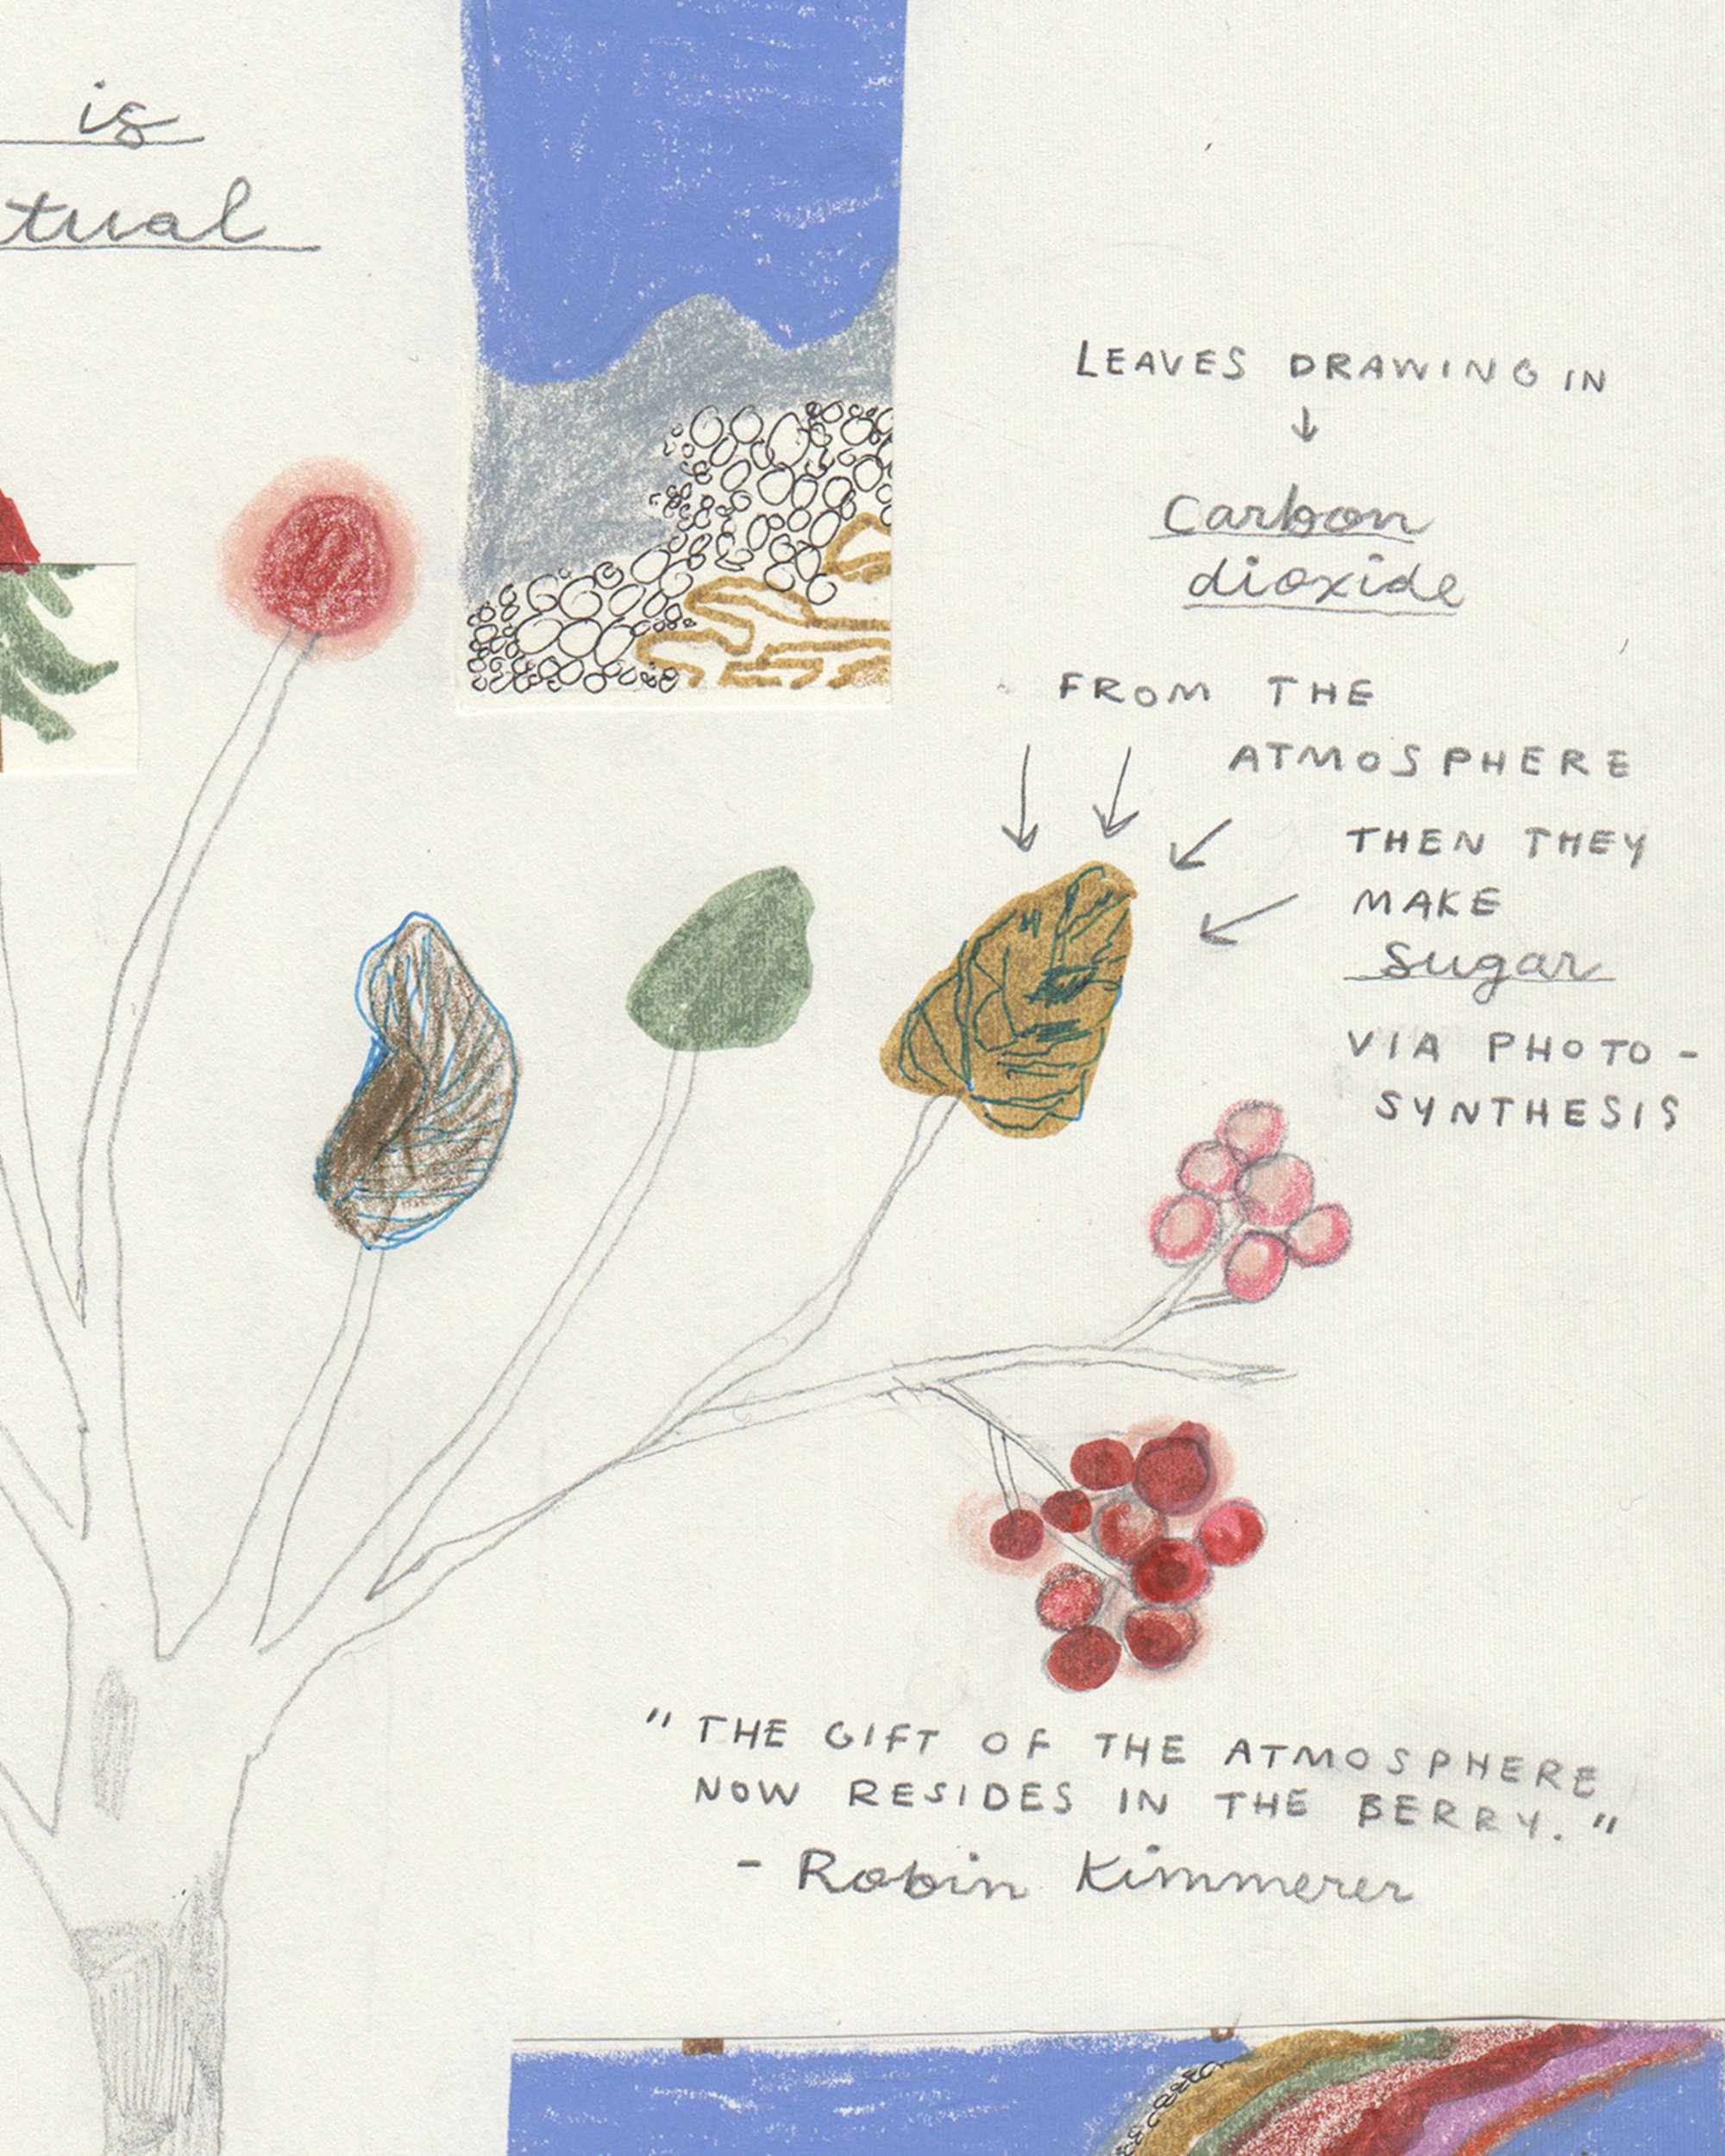 is
tual
LEAVES DRAWING IN
Carbon
dioxide
FROM THE
ATMOSPHERE
THEN THEY
MAKE
Sugar
VIA PHOTO-
SYNTHESIS
"THE GIFT OF THE ATMOSPHERE
NOW RESIDES IN THE BERRY."
- Robin Kimmerer